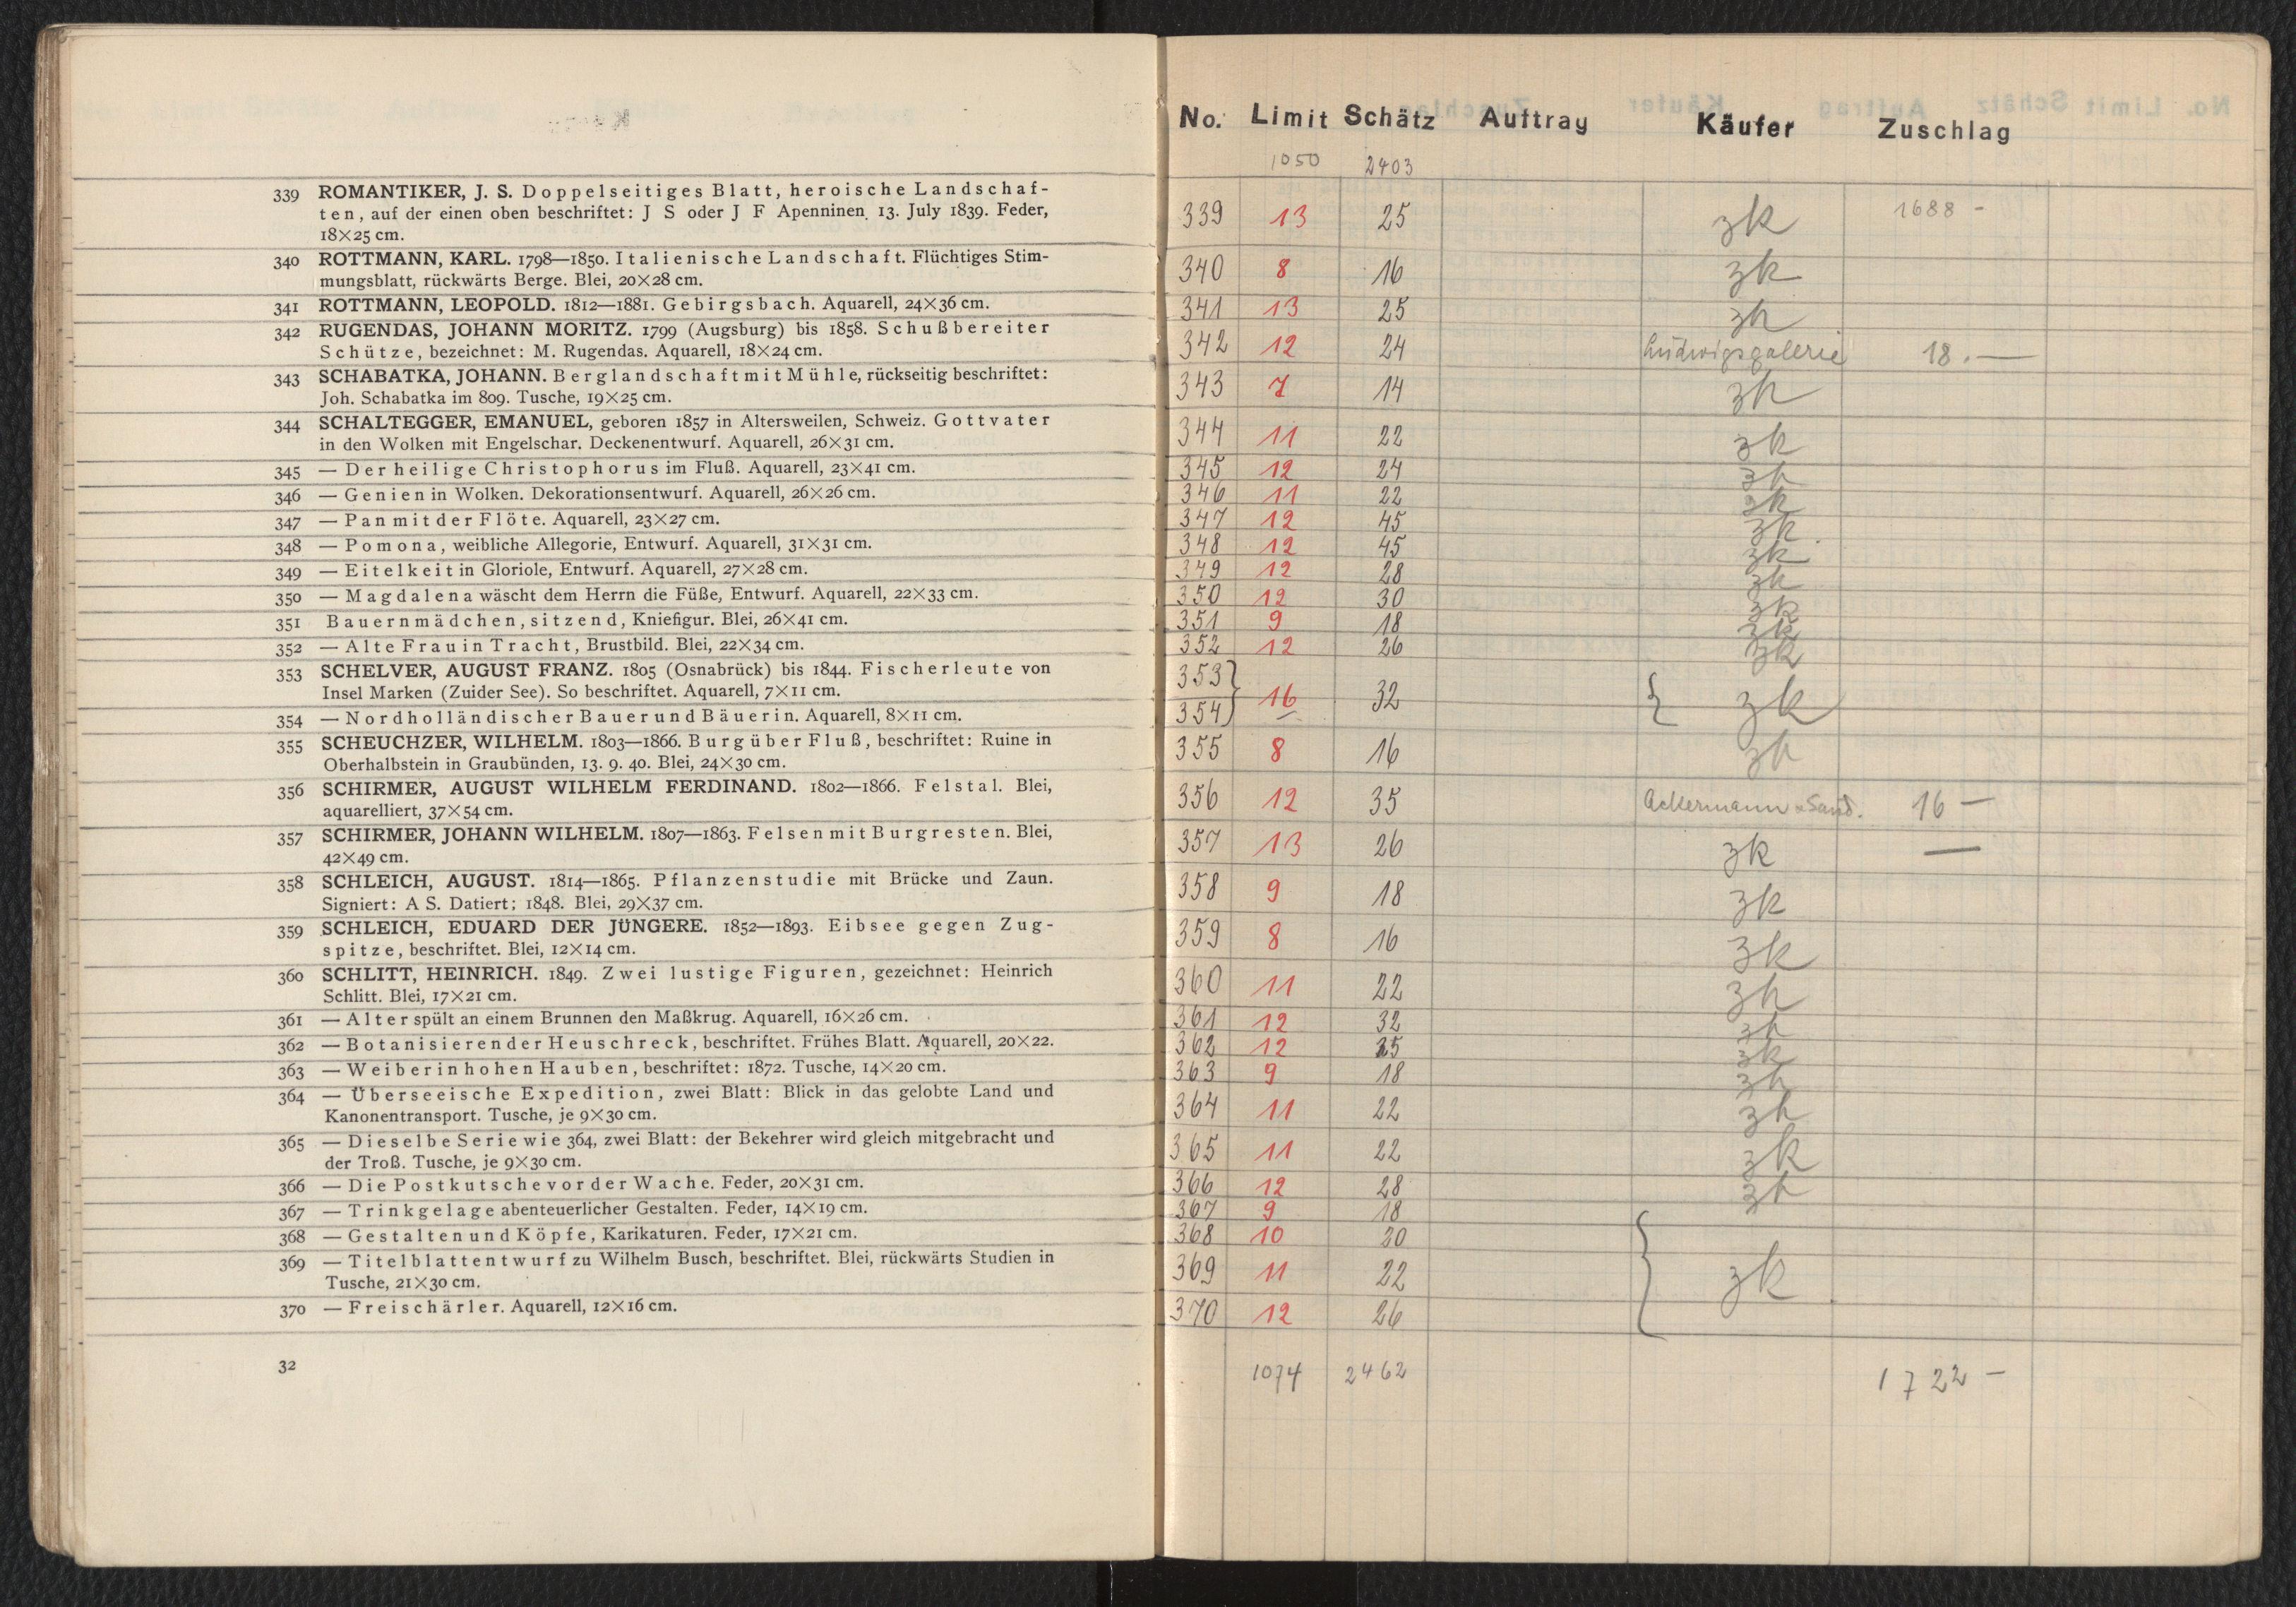 339 ROMANTIKER, J. S. Doppelseitiges Blatt, heroische Landschaf-
ten, auf der einen oben beschriftet: J S oder J F Apenninen 13. July 1839. Feder,
18×25 cm.
340 ROTTMANN, KARL. 1798—1850. Italienische Landschaft. Flüchtiges Stim-
mungsblatt, rückwärts Berge. Blei, 20×28 cm.
341 ROTTMANN, LEOPOLD. 1812—1881. Gebirgsbach. Aquarell, 24×36 cm.
342 RUGENDAS, JOHANN MORITZ. 1799 (Augsburg) bis 1858. Schußbereiter
Schütze, bezeichnet: M. Rugendas. Aquarell, 18×24 cm.
343 SCHABATKA, JOHANN. Berglandschaft mit Mühle, rückseitig beschriftet:
Joh. Schabatka im 809. Tusche, 19×25 cm.
344 SCHALTEGGER, EMANUEL, geboren 1857 in Altersweilen, Schweiz. Gottvater
in den Wolken mit Engelschar. Deckenentwurf. Aquarell, 26×31 cm.
345 — Der heilige Christophorus im Fluß. Aquarell, 23×41 cm.
346 — Genien in Wolken. Dekorationsentwurf. Aquarell, 26×26 cm.
347 — Pan mit der Flöte. Aquarell, 23×27 cm.
348 — Pomona, weibliche Allegorie, Entwurf. Aquarell, 31×31 cm.
349 — Eitelkeit in Gloriole, Entwurf. Aquarell, 27×28 cm.
350 — Magdalena wäscht dem Herrn die Füße, Entwurf. Aquarell, 22×33 cm.
351 Bauernmädchen, sitzend, Kniefigur. Blei, 26×41 cm.
352 — Alte Frau in Tracht, Brustbild. Blei, 22×34 cm.
353 SCHELVER, AUGUST FRANZ. 1805 (Osnabrück) bis 1844. Fischerleute von
Insel Marken (Zuider See). So beschriftet. Aquarell, 7×11 cm.
354 — Nordholländischer Bauer und Bäuerin. Aquarell, 8×11 cm.
355 SCHEUCHZER, WILHELM. 1803—1866. Burg über Fluß, beschriftet: Ruine in
Oberhalbstein in Graubünden, 13. 9. 40. Blei, 24×30 cm.
356 SCHIRMER, AUGUST WILHELM FERDINAND. 1802—1866. Felstal. Blei,
aquarelliert, 37×54 cm.
357 SCHIRMER, JOHANN WILHELM. 1807—1863. Felsen mit Burgresten. Blei,
42×49 cm.
358 SCHLEICH, AUGUST. 1814—1865. Pflanzenstudie mit Brücke und Zaun.
Signiert: A S. Datiert; 1848. Blei, 29×37 cm.
359 SCHLEICH, EDUARD DER JÜNGERE. 1852—1893. Eibsee gegen Zug-
spitze, beschriftet. Blei, 12×14 cm.
360 SCHLITT, HEINRICH. 1849. Zwei lustige Figuren, gezeichnet: Heinrich
Schlitt. Blei, 17×21 cm.
361 — Alter spült an einem Brunnen den Maßkrug. Aquarell, 16×26 cm.
362 — Botanisierender Heuschreck, beschriftet. Frühes Blatt. Aquarell, 20×22.
363 — Weiber in hohen Hauben, beschriftet: 1872. Tusche, 14×20 cm.
364 — Überseeische Expedition, zwei Blatt: Blick in das gelobte Land und
Kanonentransport. Tusche, je 9×30 cm.
365 — Dieselbe Serie wie 364, zwei Blatt: der Bekehrer wird gleich mitgebracht und
der Troß. Tusche, je 9×30 cm.
366 — Die Postkutsche vor der Wache. Feder, 20×31 cm.
367 — Trinkgelage abenteuerlicher Gestalten. Feder, 14×19 cm.
368 — Gestalten und Köpfe, Karikaturen. Feder, 17×21 cm.
369 — Titelblattentwurf zu Wilhelm Busch, beschriftet. Blei, rückwärts Studien in
Tusche, 21×30 cm.
370 — Freischärler. Aquarell, 12×16 cm.
32
No. Limit Schätz Auftrag Käufer Zuschlag
1050 2403
339 13 25 zk 1688 -
340 8 16 zk
341 13 25 zk
342 12 24 Ludwigsgalerie 18.—
343 7 14 zk
344 11 22 zk
345 12 24 zk
346 11 22 zk
347 12 45 zk
348 12 45 zk
349 12 28 zk
350 12 30 zk
351 9 18 zk
352 12 26 zk
353 }
354 } 16 32 { zk
355 8 16 zk
356 12 35 Ackermann & Sand. 16 —
357 13 26 zk —
358 9 18 zk
359 8 16 zk
360 11 22 zk
361 12 32 zk
362 12 25 zk
363 9 18 zk
364 11 22 zk
365 11 22 zk
366 12 28 zk
367 9 18
368 10 20
369 11 22 { zk
370 12 26
1074 2462 1722 -